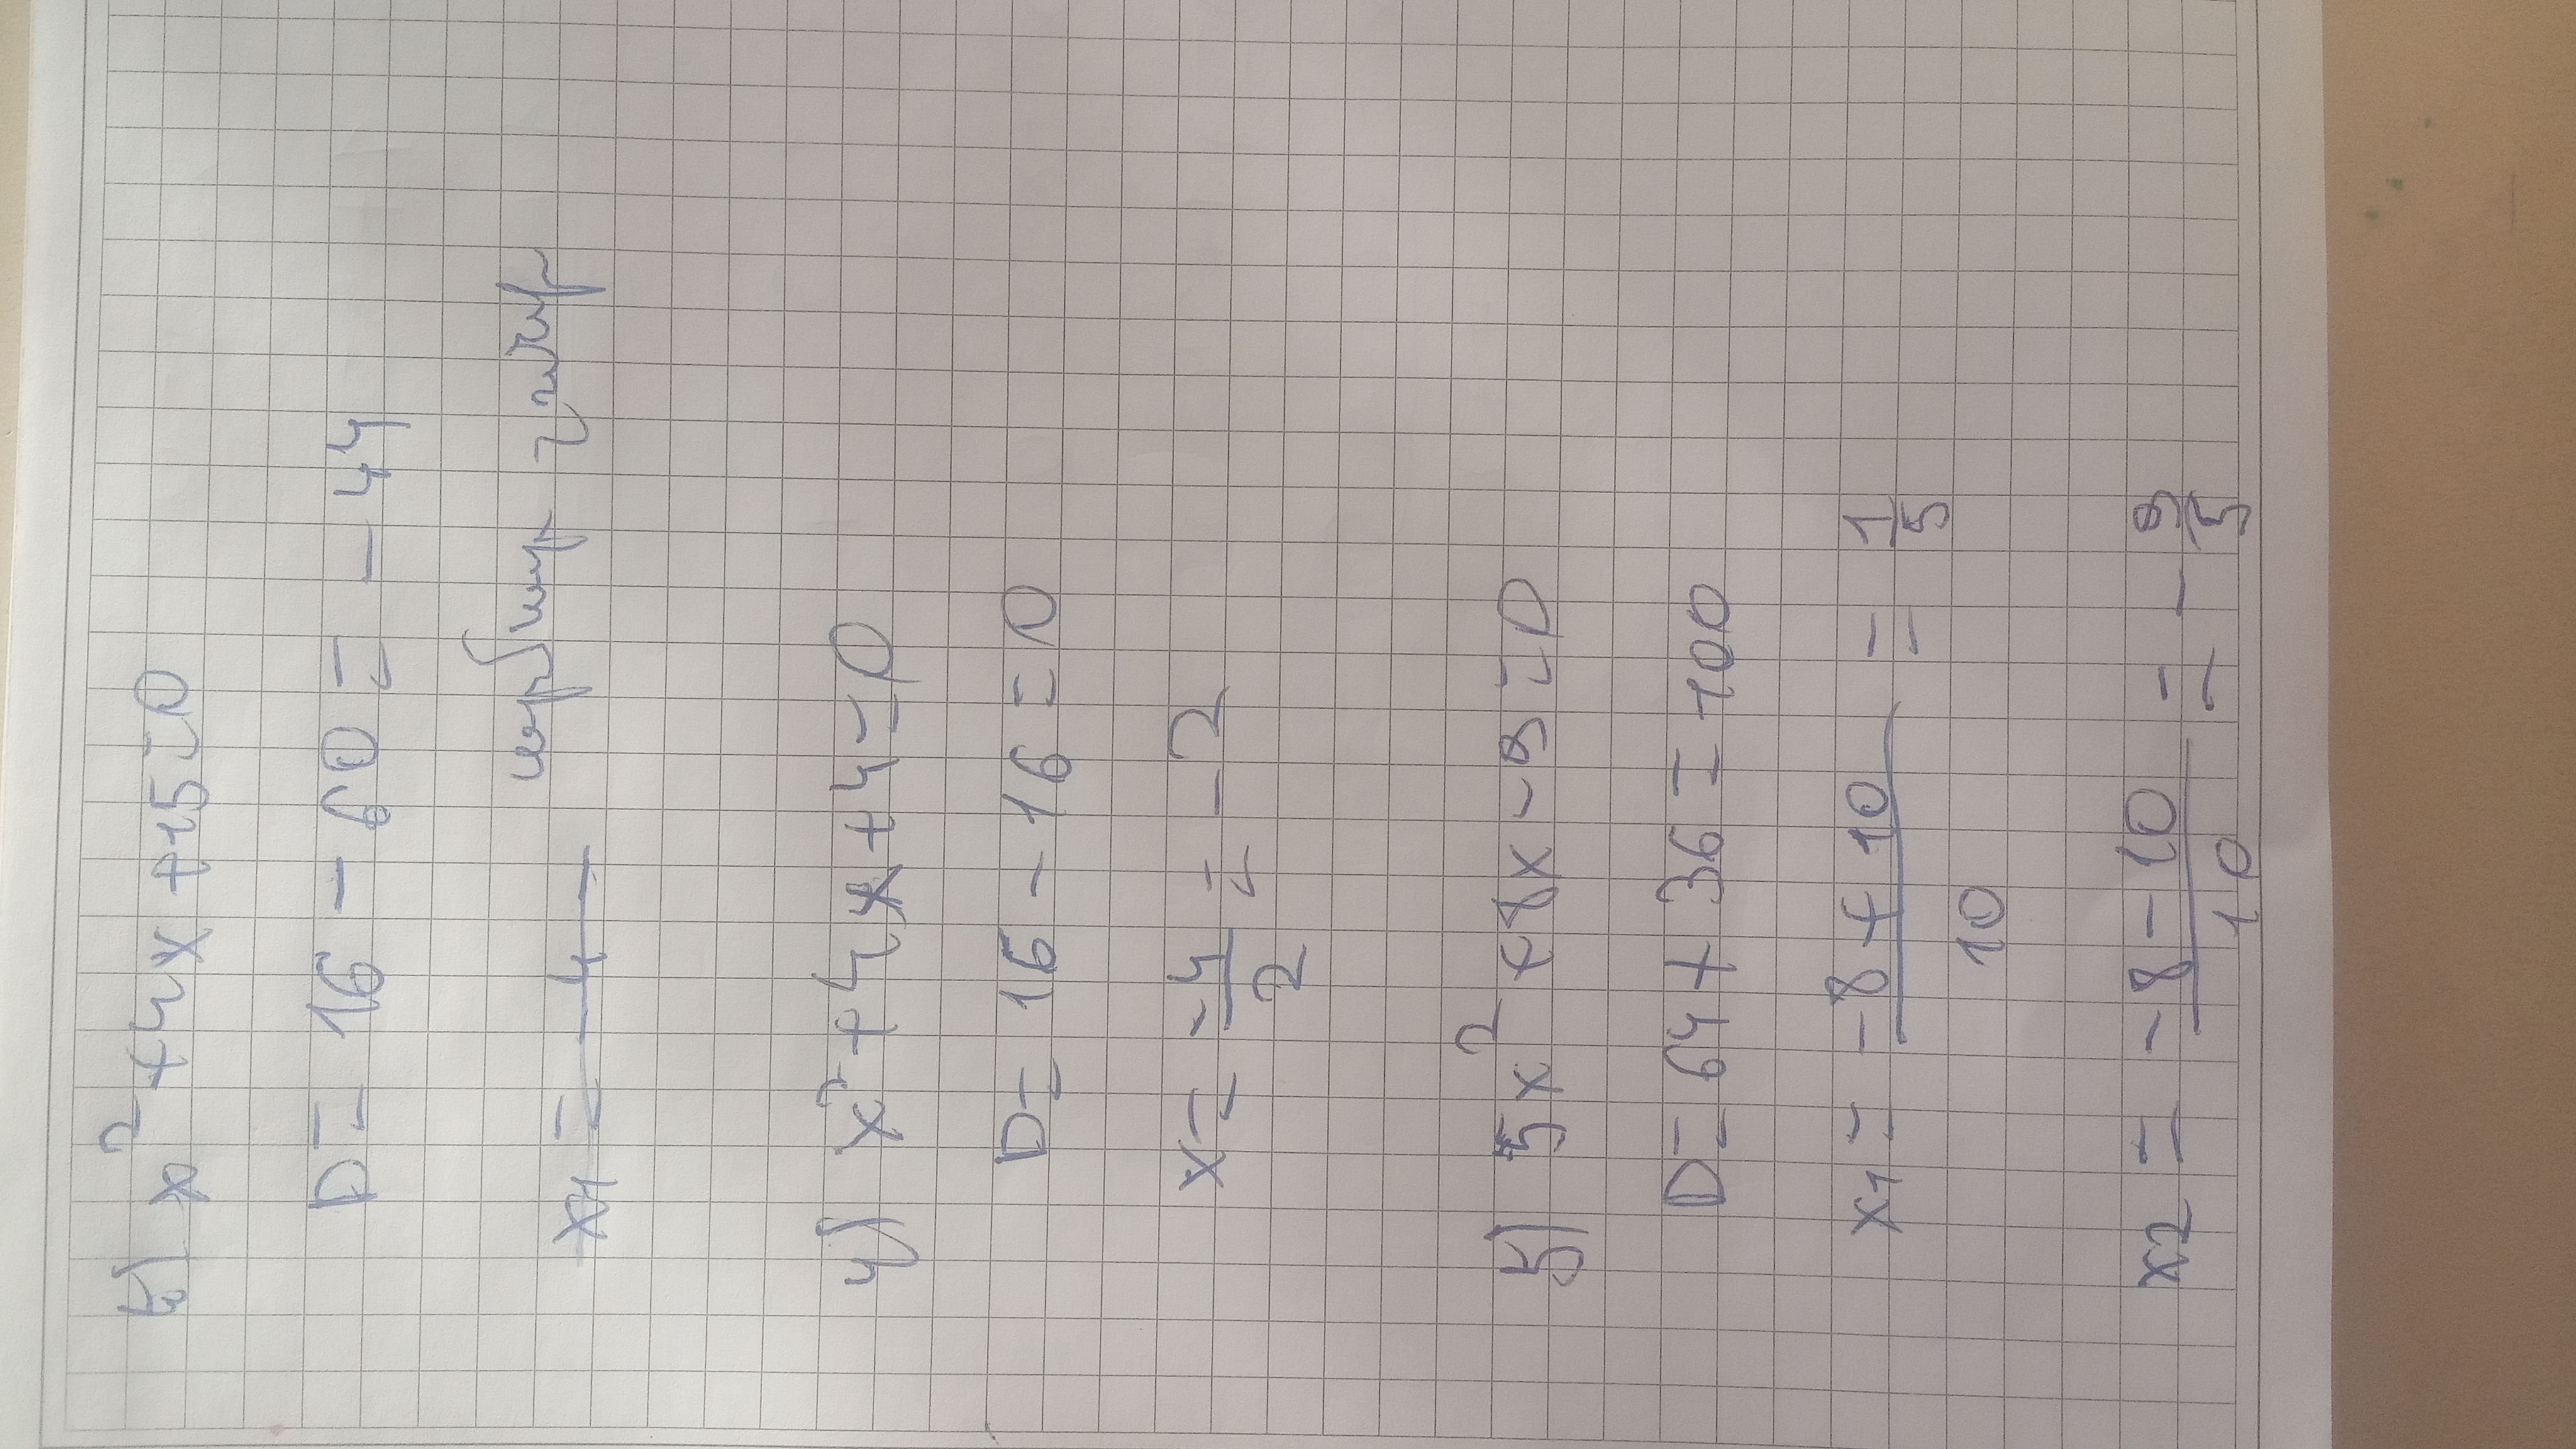 x²+4x+15=0
D= 16 - 60 = - 44
x1= -4-
4) x²+4x+4=0
D= 16 - 16 = 0
x= -4/2 = -2
5) 5x²+8x-9=0
D=64+36=100
x1= -8+10/10 = 1/5
x2= -8-10/10 = -9/5